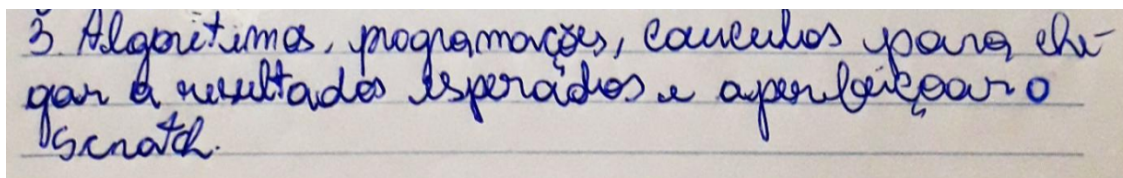 3. Algoritimos, programações, cauculos para che-
gar a resultados esperados e aperfeiçoar o
Scratch.